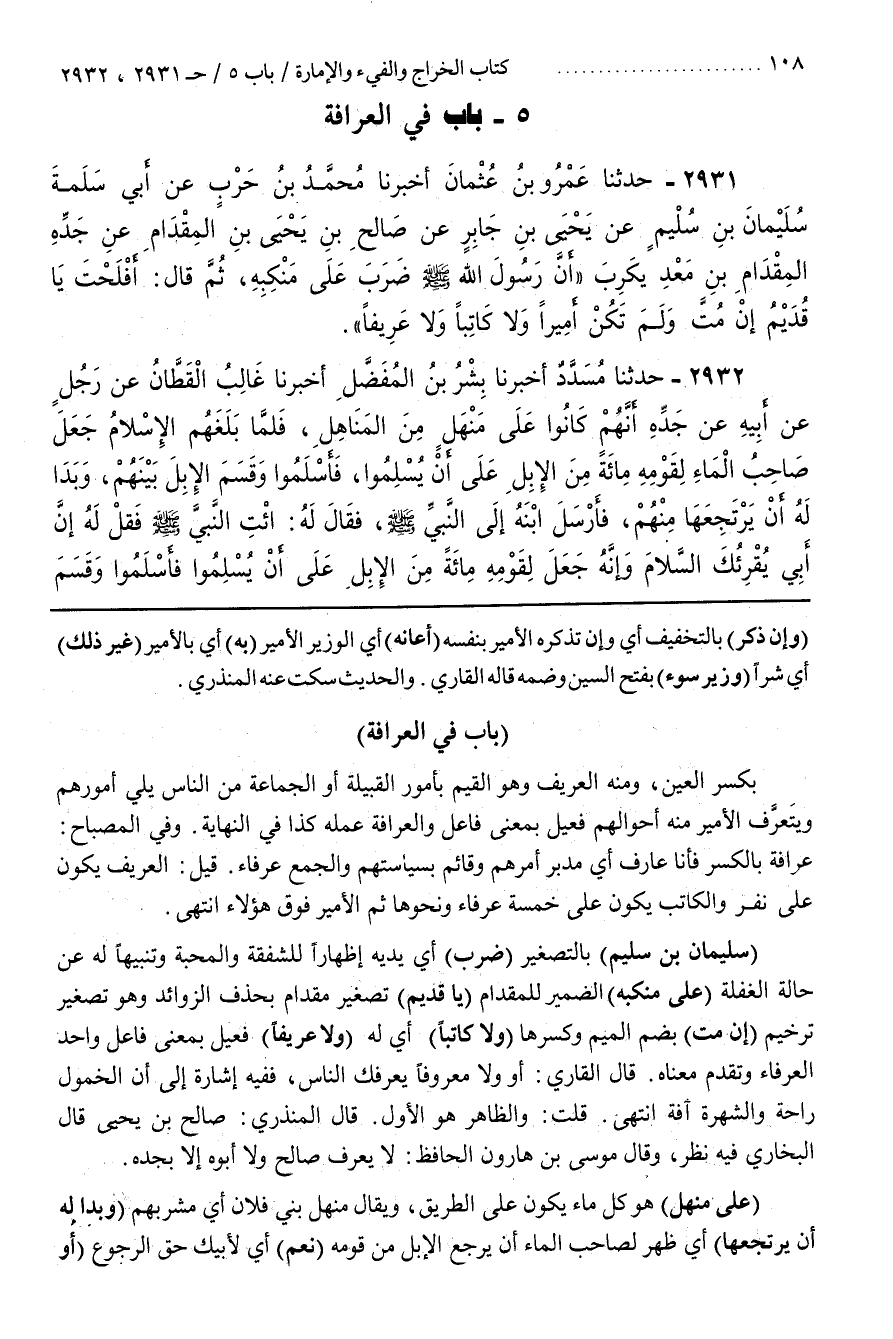 ١٠٨ ........................ كتاب الخراج والفيء والإمارة / باب ٥ / حـ ٢٩٣١ ، ٢٩٣٢
٥ ـ باب في العرافة
٢٩٣١ ـ حدثنا عَمْرُو بنُ عُثْمانَ أخبرنا مُحمَّدُ بنُ حَرْبٍ عن أَبي سَلَمةَ
سُلَيْمانَ بنِ سُلْيمٍ عن يَحْيَى بنِ جَابِرٍ عن صَالحِ بنِ يَحْيَى بنِ المِقْدَامِ عنِ جَدِّهِ
المِقْدَامِ بنِ مَعْدِ يكَرِبَ «أَنَّ رَسُولَ الله ﷺ ضَرَبَ عَلَى مَنْكِبِهِ، ثُمَّ قال: أَفْلَحْتَ يَا
قُدَيْمُ إنْ مُتَّ وَلَمَ تَكُنْ أَمِيراً وَلا كَاتِباً وَلا عَرِيفاً».
٢٩٣٢ ـ حدثنا مُسَدَّدٌ أخبرنا بِشْرُ بنُ المُفَضَّلِ أخبرنا غَالِبُ الْقَطَّانُ عن رَجُلٍ
عن أَبِيهِ عن جَدِّهِ أَنَّهُمْ كَانُوا عَلَى مَنْهَلٍ مِنَ المَنَاهِلِ، فَلمَّا بَلَغَهُم الإسْلامُ جَعَلَ
صَاحِبُ الْمَاءِ لِقَوْمِهِ مِائَةً مِنَ الإبِلِ عَلَى أَنْ يُسْلِمُوا، فَأَسْلَمُوا وَقَسَمَ الإبِلَ بَيْنَهُمْ، وَبَدَا
لَهُ أَنْ يَرْتَجِعَهَا مِنْهُمْ، فأَرْسَلَ ابْنَهُ إلَى النَّبيِّ ﷺ، فقَالَ لَهُ: ائْتِ النَّبيَّ ﷺ فَقلْ لَهُ إنَّ
أَبِي يُقْرِئُكَ السَّلامَ وَإنَّهُ جَعَلَ لِقَوْمِهِ مِائَةً مِنَ الإبِلِ عَلَى أَنْ يُسْلِمُوا فأَسْلَمُوا وَقَسَمَ
(وإن ذكر) بالتخفيف أي وإن تذكره الأمير بنفسه (أعانه) أي الوزير الأمير (به) أي بالأمير (غير ذلك)
أي شراً (وزير سوء) بفتح السين وضمه قاله القاري. والحديث سكت عنه المنذري.
(باب في العرافة)
بكسر العين، ومنه العريف وهو القيم بأمور القبيلة أو الجماعة من الناس يلي أمورهم
ويتَعرَّف الأمير منه أحوالهم فعيل بمعنى فاعل والعرافة عمله كذا في النهاية. وفي المصباح:
عرافة بالكسر فأنا عارف أي مدبر أمرهم وقائم بسياستهم والجمع عرفاء. قيل: العريف يكون
على نفر والكاتب يكون على خمسة عرفاء ونحوها ثم الأمير فوق هؤلاء انتهى.
(سليمان بن سليم) بالتصغير (ضرب) أي يديه إظهاراً للشفقة والمحبة وتنبيهاً له عن
حالة الغفلة (على منكبه) الضمير للمقدام (يا قديم) تصغير مقدام بحذف الزوائد وهو تصغير
ترخيم (إن مت) بضم الميم وكسرها (ولا كاتباً) أي له (ولا عريفاً) فعيل بمعنى فاعل واحد
العرفاء وتقدم معناه. قال القاري: أو ولا معروفاً يعرفك الناس، ففيه إشارة إلى أن الخمول
راحة والشهرة آفة انتهى. قلت: والظاهر هو الأول. قال المنذري: صالح بن يحيى قال
البخاري فيه نظر، وقال موسى بن هارون الحافظ: لا يعرف صالح ولا أبوه إلا بجده.
(على منهل) هو كل ماء يكون على الطريق، ويقال منهل بني فلان أي مشربهم (وبدا له
أن يرتجعها) أي ظهر لصاحب الماء أن يرجع الإبل من قومه (نعم) أي لأبيك حق الرجوع (أو